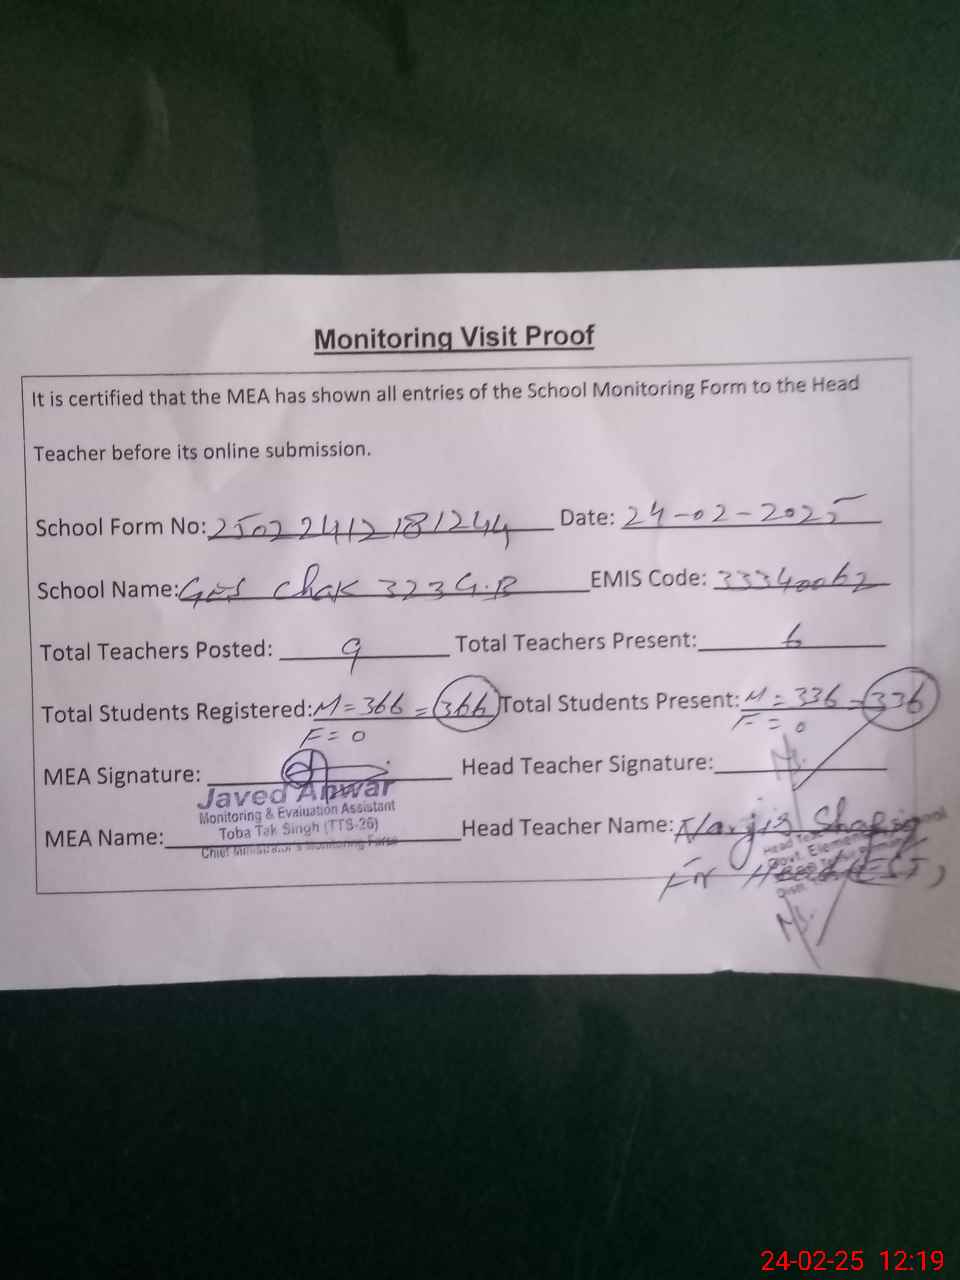 Monitoring Visit Proof
It is certified that the MEA has shown all entries of the School Monitoring Form to the Head
Teacher before its online submission.
School Form No: 25022412181244 Date: 24-02-2025
School Name: Ges Chak 323 G.B EMIS Code: 33340062
Total Teachers Posted: 9 Total Teachers Present: 6
Total Students Registered: M = 366 = 366 Total Students Present: M = 336 = 336
F = 0 F = 0
MEA Signature: Head Teacher Signature:
Javed Anwar
Monitoring & Evaluation Assistant
Toba Tek Singh (TTS-26)
MEA Name: Head Teacher Name: Nargis
Chief Minister's Monitoring Force
Head
Govt. Elementary
For Head (EST)
24-02-25 12:19